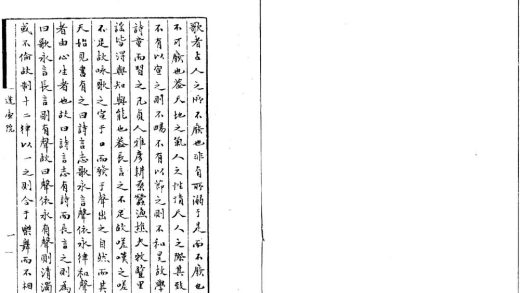 歌者古人之所不廢也非有所溺于是而不廢也
不可廢也蓋天地之氣人之性情天人之際其致
不有以宣之則不暢不有以節之則不和是故學
詩童而習之凡貞人雅彥耕桑蠶漁樵夫牧豎里
謠皆得與知與能也蓋長言之不足故嗟嘆之嗟
不足故咏歌之宣于口而發于聲出之自然而其
天始見書有之曰詩言志歌永言聲依永律和聲
者由心生者也故曰詩言志有詩而長言之則為
曰歌永言長言則有聲故曰聲依永有聲則清濁
或不倫故制十二律以一之則合于樂舞而不相
院
一